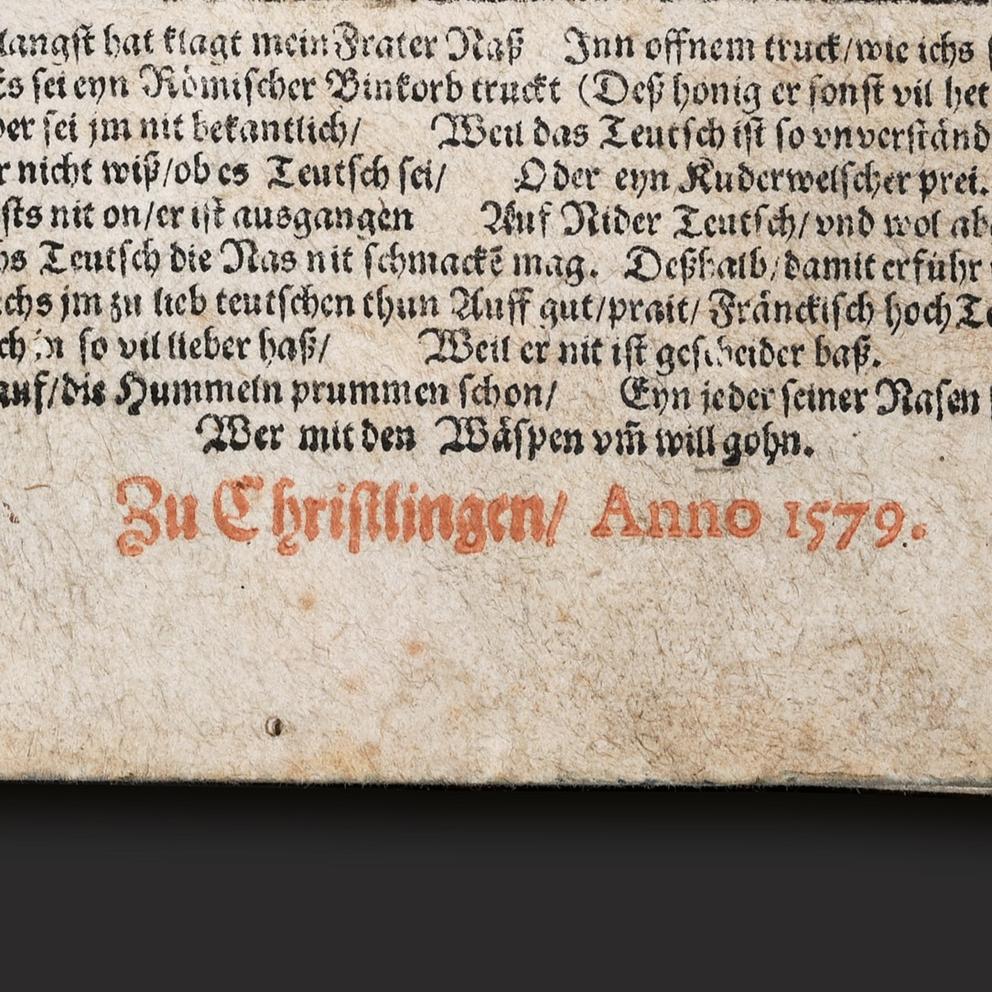 langst hat klagt mein Frater Naß Jnn offnem truck/wie ichs
sei eyn Römischer Binkorb truckt (Deß honig er sonst vil het
sei jm nit bekantlich/ Weil das Teutsch ist so vnverständ
nicht wiß/ob es Teutsch sei/ Oder eyn Kuderwelscher prei.
nit on/er ist ausgangen Auf Nider Teutsch/vnd wol
Teutsch die Nas nit schmackẽ mag. Deßhalb/damit erführ
jm zu lieb teutschen thun Auff gut/prait/Fränckisch hoch
so vil lieber haß/ Weil er nit ist gescheider baß.
auf/die Hummeln prummen schon/ Eyn jeder seiner Nasen
Wer mit den Wäspen vm̃ will gohn.
Zu Christlingen/ Anno 1579.